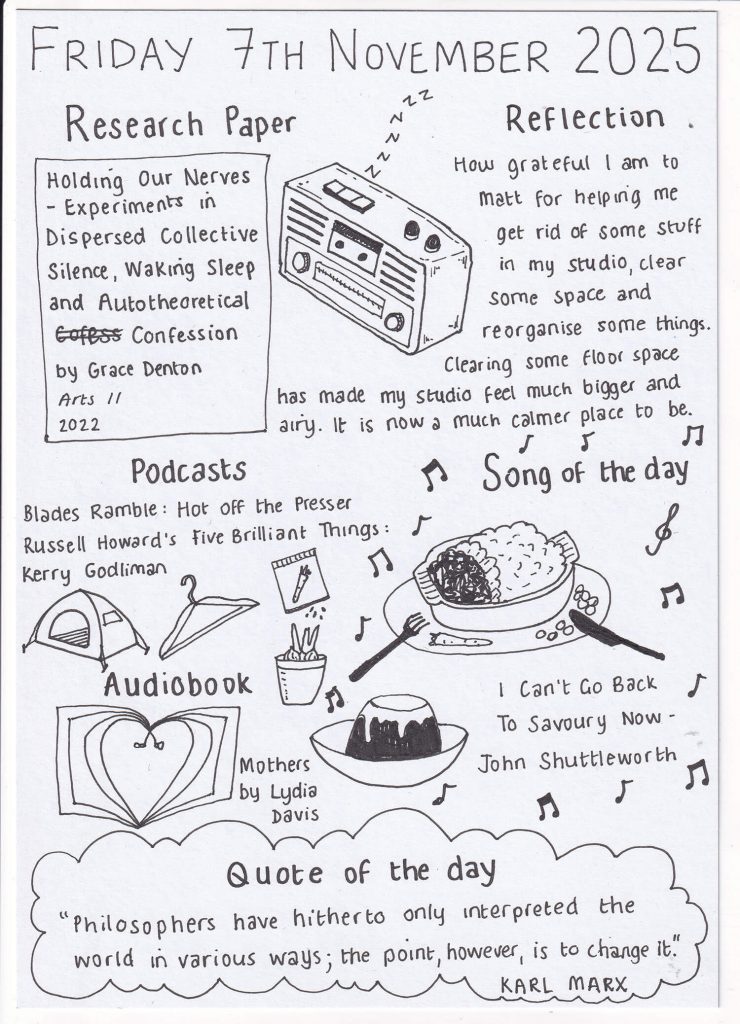 FRIDAY 7TH NOVEMBER 2025
Research Paper
Holding Our Nerves
- Experiments in
Dispersed Collective
Silence, Waking Sleep
and Autotheoretical
Cofess Confession
by Grace Denton
Arts 11
2022
zzzzzzz
Reflection
How grateful I am to
Matt for helping me
get rid of some stuff
in my studio, clear
some space and
reorganise some things.
Clearing some floor space
has made my studio feel much bigger and
airy. It is now a much calmer place to be.
Podcasts
Blades Ramble: Hot off the Presser
Russell Howard's Five Brilliant Things:
Kerry Godliman
Song of the day
I Can't Go Back
To Savoury Now -
John Shuttleworth
Audiobook
Mothers
by Lydia
Davis
Quote of the day
"Philosophers have hitherto only interpreted the
world in various ways; the point, however, is to change it."
KARL MARX